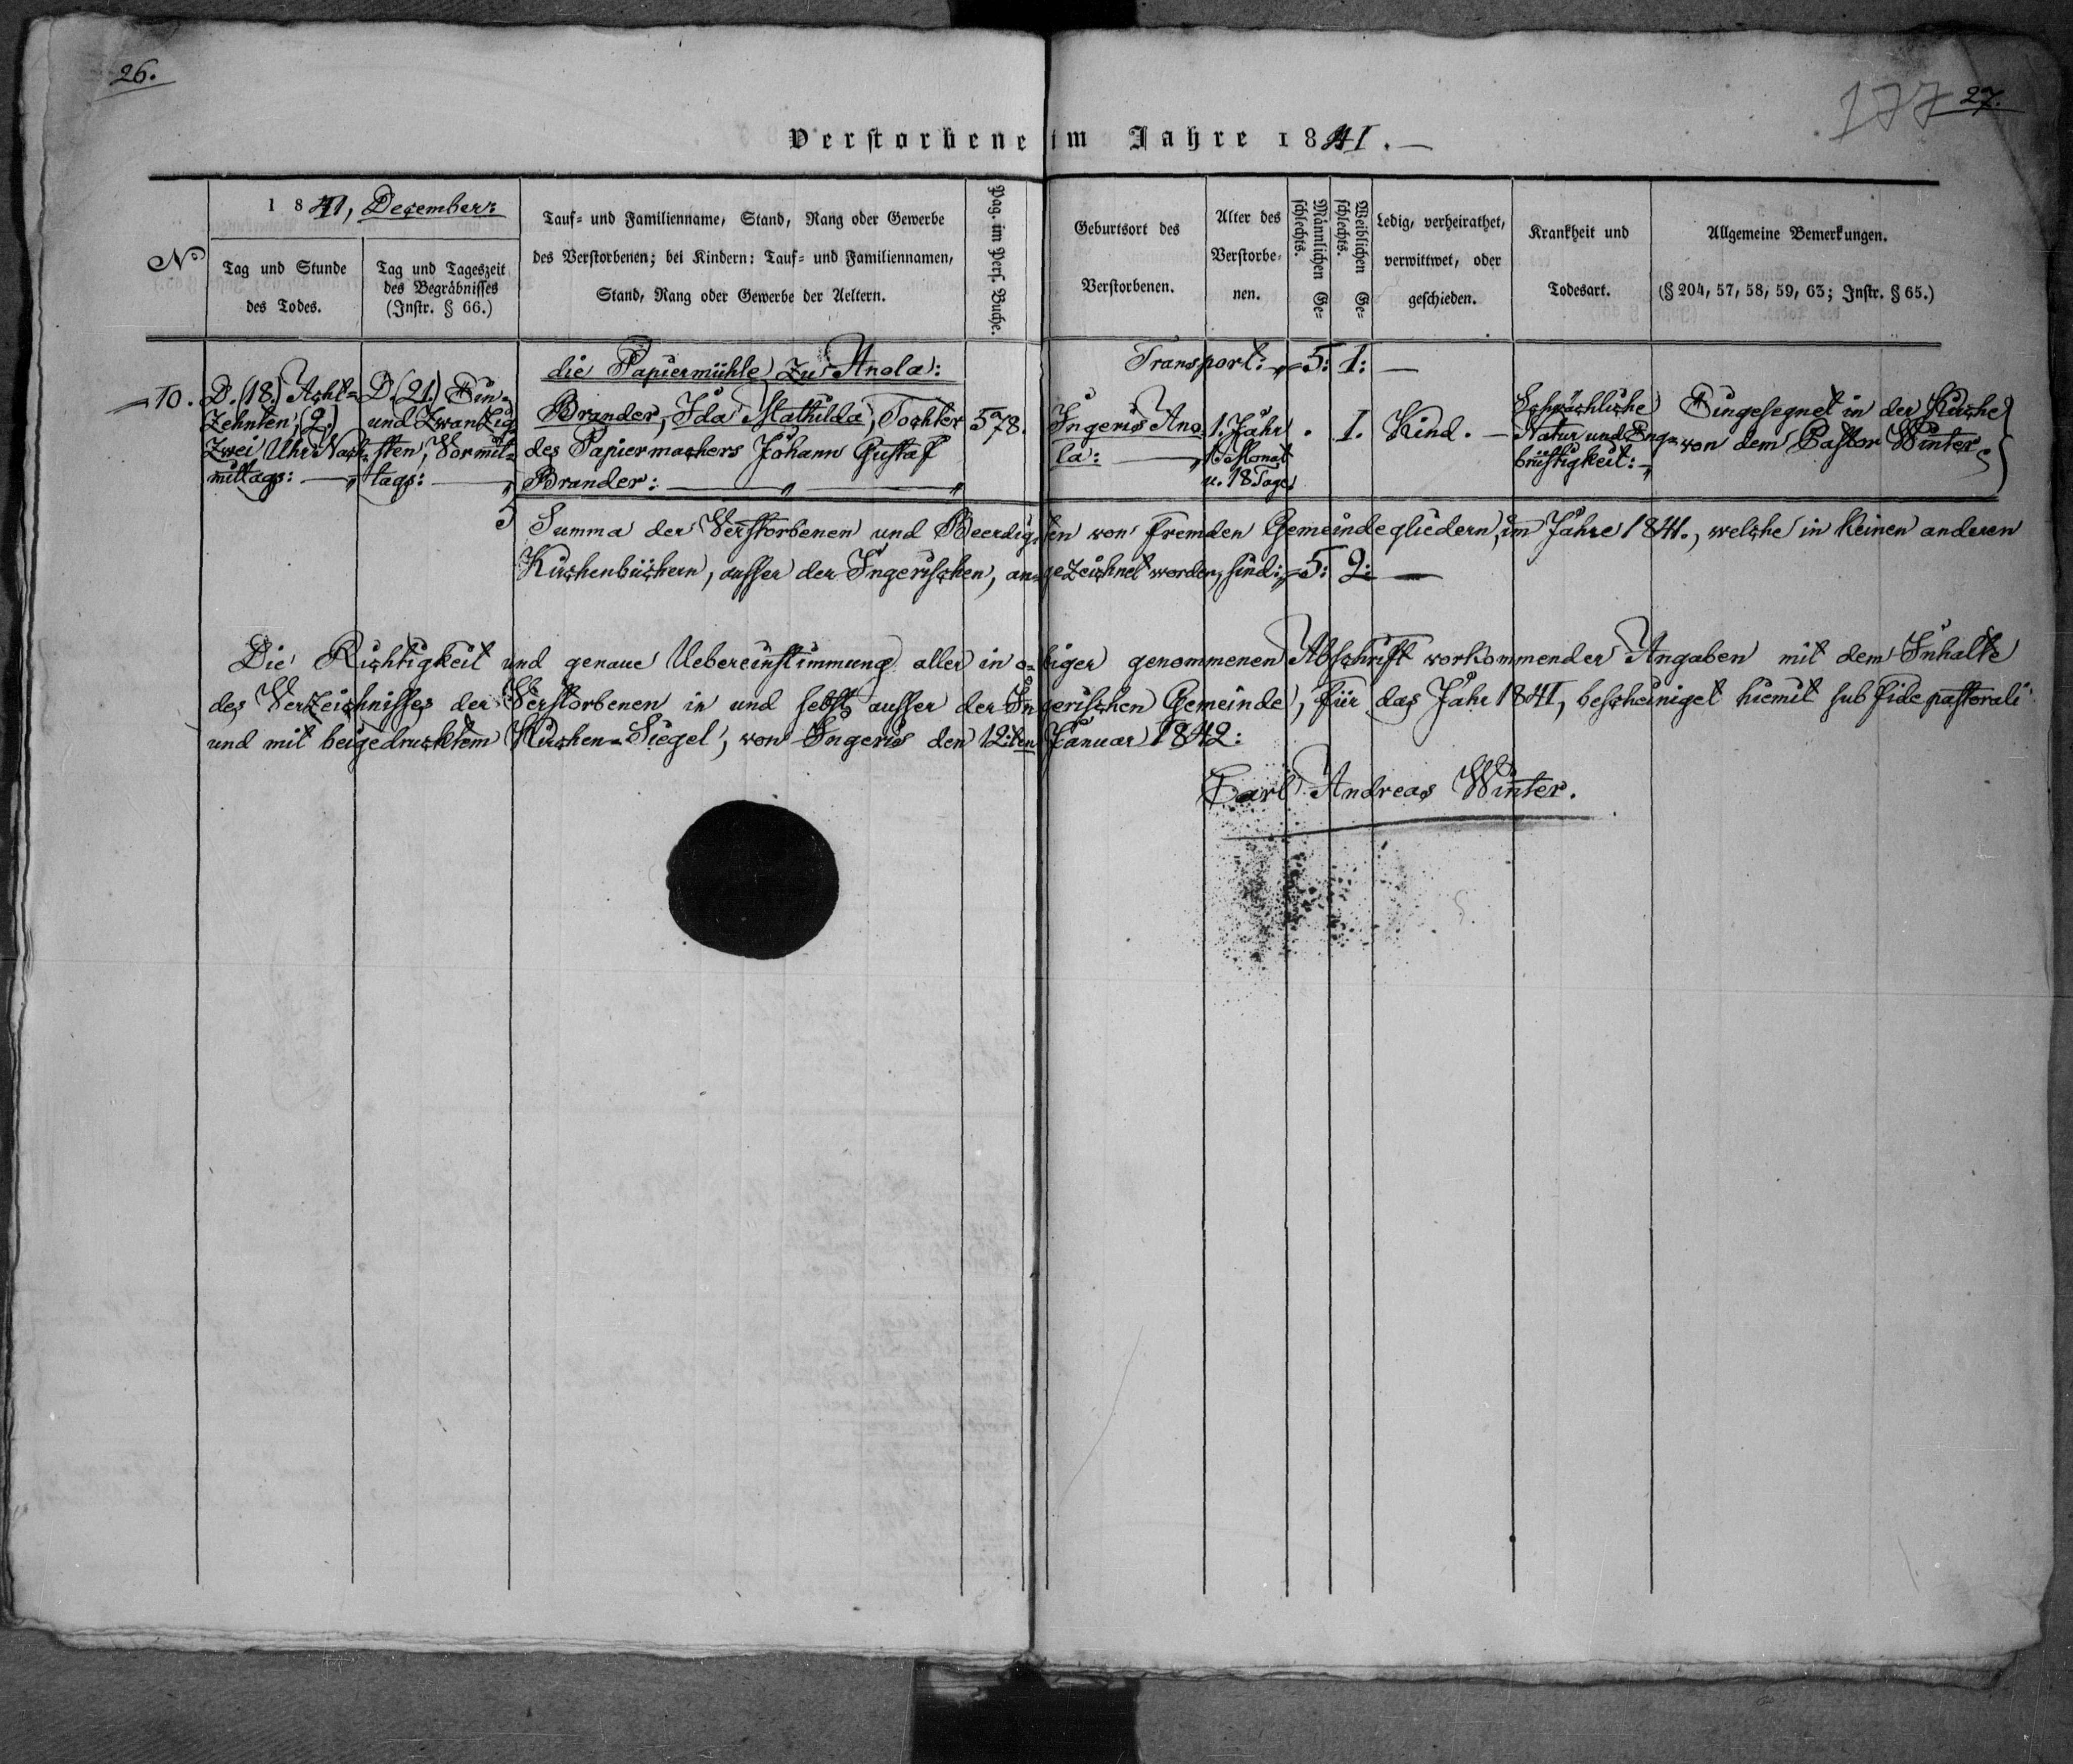 26.
177 27.
Verstorbene im Jahre 1841.
1841, December:
No
Tag und Stunde
des Todes.
Tag und Tageszeit
des Begräbnisses
(Instr. § 66.)
Tauf- und Familienname, Stand, Rang oder Gewerbe
des Verstorbenen; bei Kindern: Tauf- und Familiennamen,
Stand, Rang oder Gewerbe der Aeltern.
Pag. im Pers. Buche.
Geburtsort des
Verstorbenen.
Alter des
Verstorbe-
nen.
Männlichen Ge-
schlechts.
Weiblichen Ge-
schlechts.
Ledig, verheirathet,
verwittwet, oder
geschieden.
Krankheit und
Todesart.
Allgemeine Bemerkungen.
(§ 204, 57, 58, 59, 63; Instr. § 65.)
die Papiermühle zu Anola:
Transport: 5: 1: —
10.
D. (18.) Acht-
zehnten, (2.)
zwei Uhr Nach-
mittags: —
D. (21.) Ein-
und Zwanzig-
sten, Vormit-
tags: —
Brander, Ida Mathilda, Tochter
des Papiermachers Johann Gustaf
Brander: —
578.
Ingeris Ano-
la: —
1. Jahr
1 Monat
u. 18 Tage.
. 1.
Kind. —
Schwächliche
Natur und Eng-
brüstigkeit:
Eingesegnet in der Kirche
von dem Pastor Winter.
Summa der Verstorbenen und Beerdigten von fremden Gemeindegliedern, im Jahre 1841., welche in keinen anderen
Kirchenbüchern, ausser der Ingerischen, angezeichnet worden, sind: 5: 2: —
Die Richtigkeit und genaue Uebereinstimmung aller in o-biger genommenen Abschrift vorkommender Angaben mit dem Inhalte
des Verzeichnisses der Verstorbenen in und selbst ausser der Ingerischen Gemeinde, für das Jahr 1841, bescheiniget hiemit sub fide pastorali
und mit beigedrucktem Kirchen-Siegel, von Ingeris den 12:ten Januar 1842:
Carl Andreas Winter.